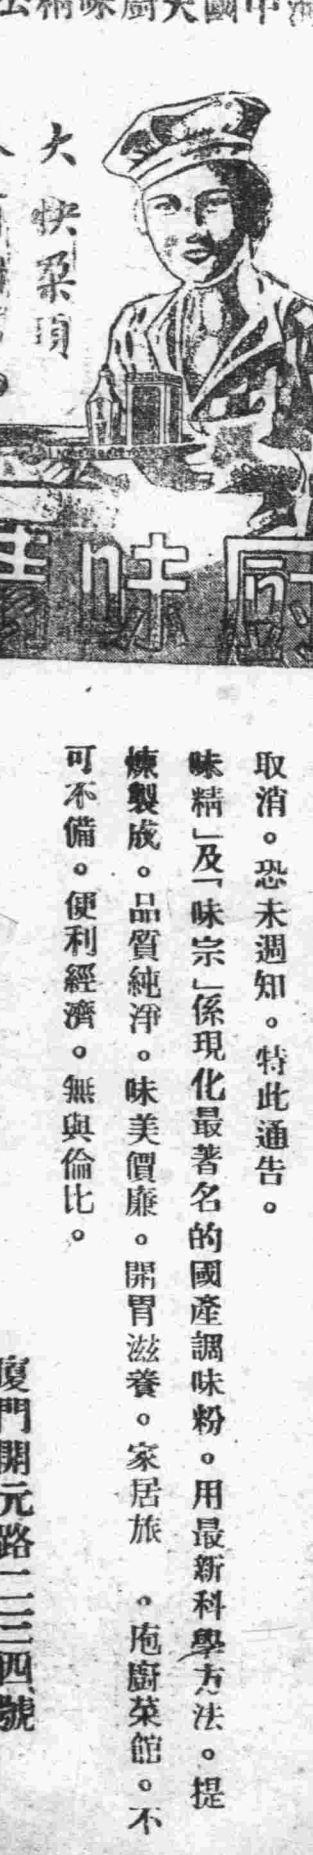 中國天廚味精公
大快朶頤
味
取消。恐未週知。特此通告。
味精」及「味宗」係現化最著名的國產調味粉。用最新科學方法。提
煉製成。品質純淨。味美價廉。開胃滋養。家居旅 。庖廚菜館。不
可不備。便利經濟。無與倫比。
廈門開元路一二三四號